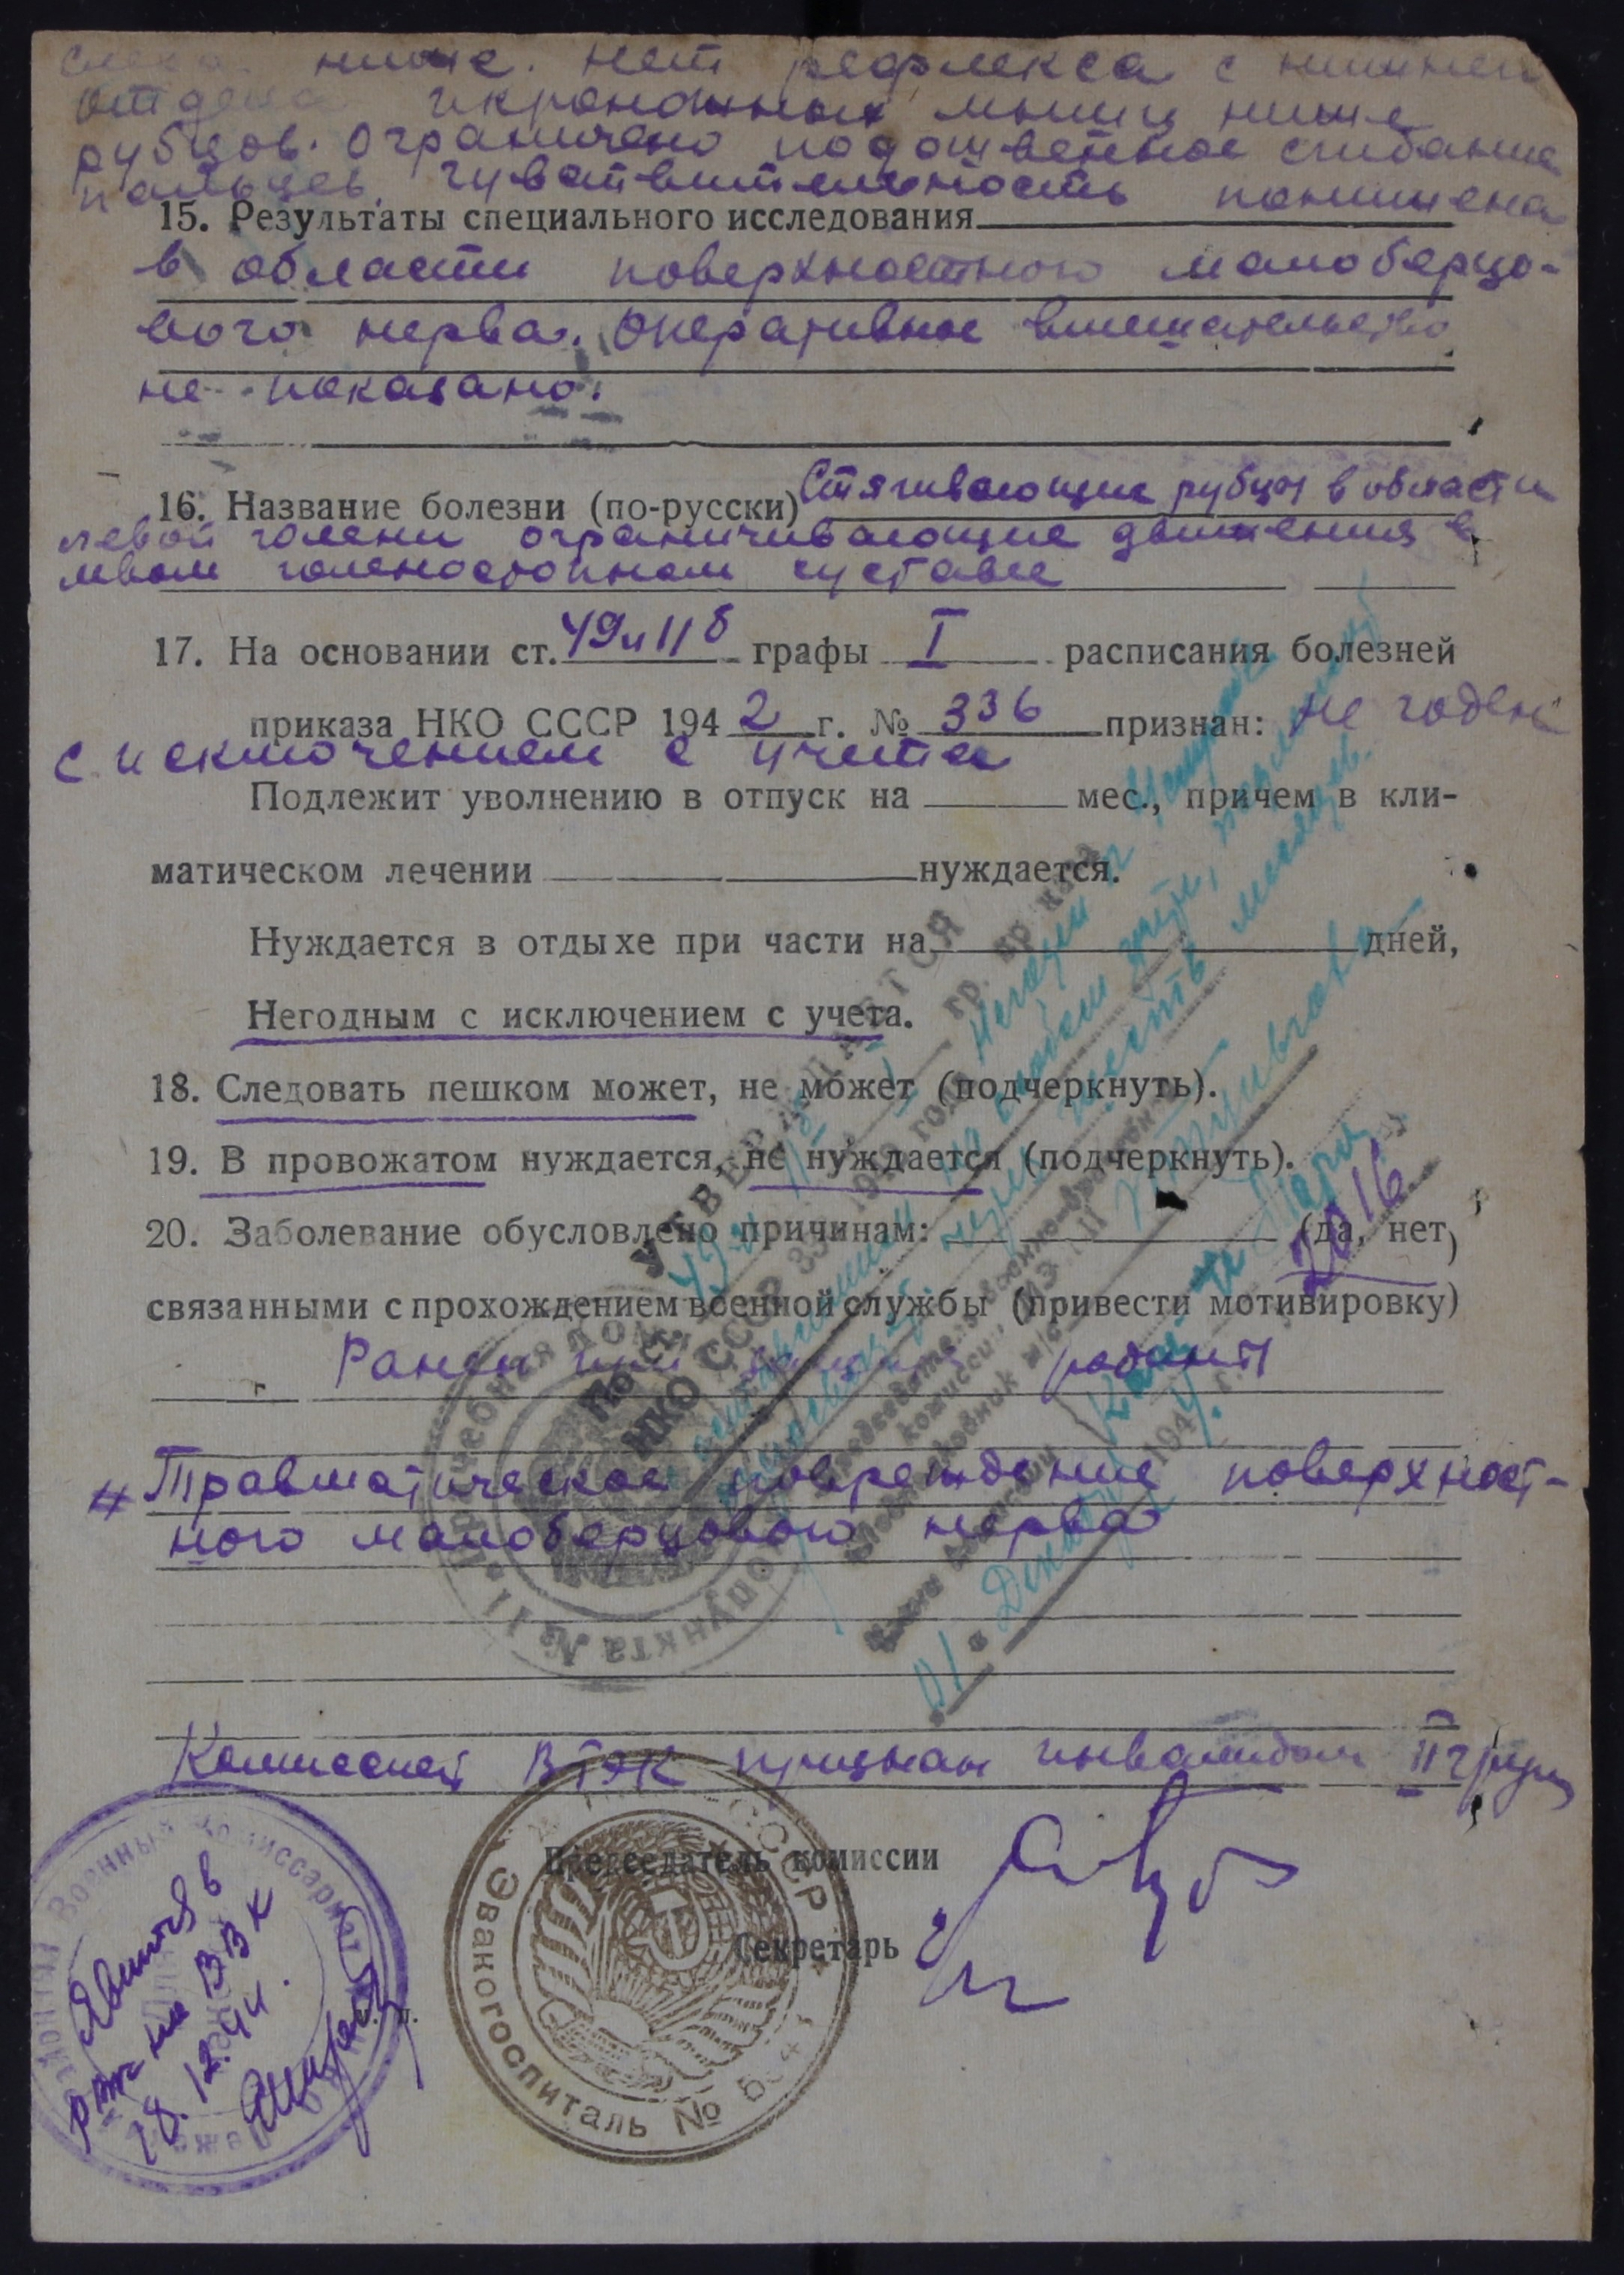 ниже. Нет рефлекса с нижней
отдела икроножных мышц ниже
рубцов. Ограничено подошвенное сгибание
пальцев. Чувствительность понижена
15. Результаты специального исследования
в области поверхностного малоберцо-
вого нерва. Оперативное вмешательство
не показано.
16. Название болезни (по-русски) Стягивающие рубцы в области
левой голени ограничивающие движения в
левом голеностопном суставе
17. На основании ст. 49 и 11 б графы I расписания болезней
приказа НКО СССР 194 2 г. № 336 признан: не годен
с исключением с учета
Подлежит уволнению в отпуск на мес., причем в кли-
матическом лечении нуждается.
Нуждается в отдыхе при части на дней,
Негодным с исключением с учета.
18. Следовать пешком может, не может (подчеркнуть).
19. В провожатом нуждается, не нуждается (подчеркнуть).
20. Заболевание обусловлено причинам: (да, нет)
связанными с прохождением военной службы (привести мотивировку)
Ранен при защите родины
# Травматическое повреждение поверхност-
ного малоберцового нерва
УТВЕРЖДАЕТСЯ
По ст.
НКО СССР 336 1942 года
Председатель военно-врачебной
комиссии
Декабря 194 г.
пункта № 11
Комиссией ВТЭК признан инвалидом II группы
Председатель комиссии
Секретарь
СССР
Эвакогоспиталь №
Военный Комиссариат
Явиться в
РВК на ВВК
28.12.44.